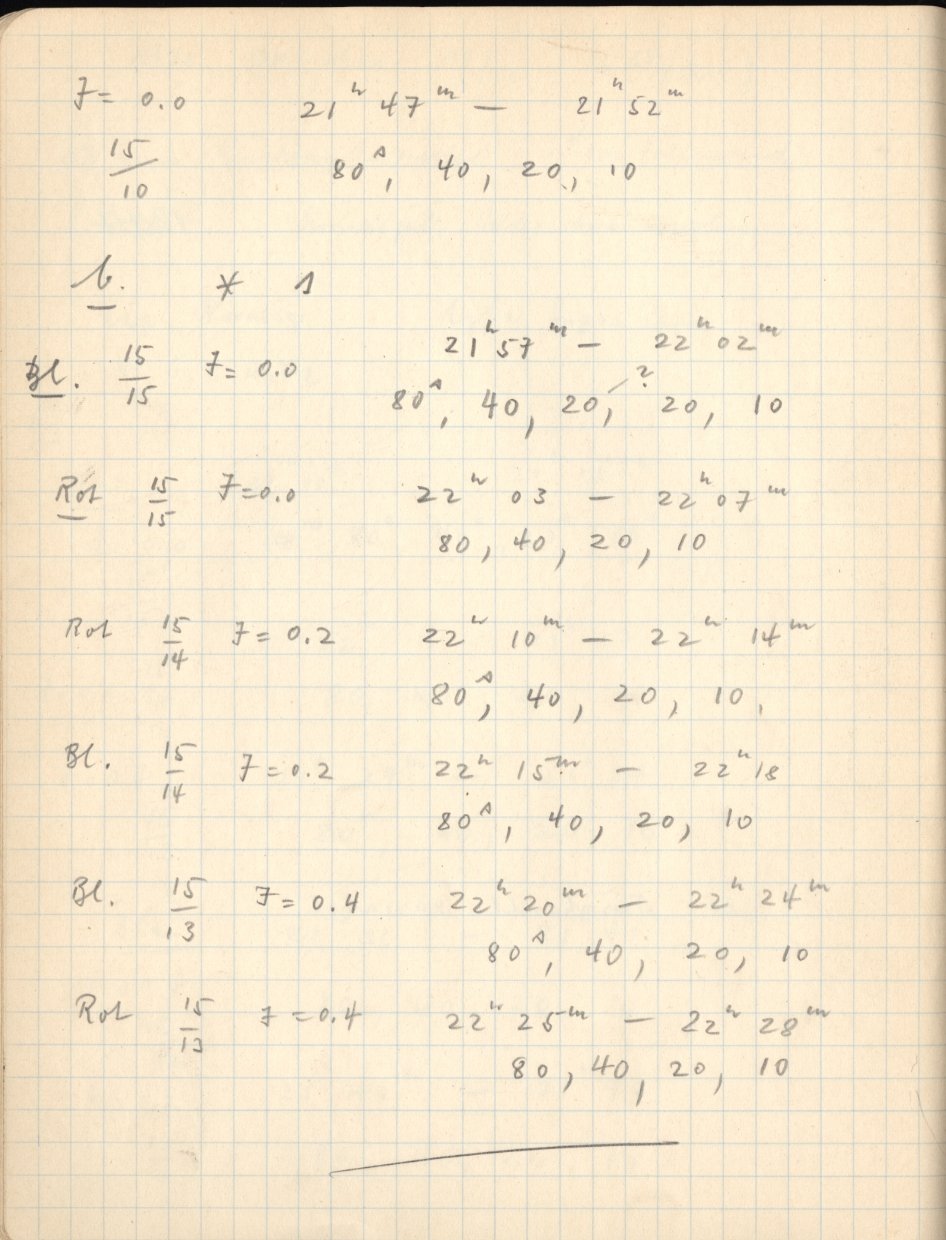 F = 0.0 21ʰ 47ᵐ — 21ʰ 52ᵐ
15/10 80ˢ, 40, 20, 10
b. * 1
21ʰ 57ᵐ — 22ʰ 02ᵐ
Bl. 15/15 F = 0.0
80ˢ, 40, 20, ? 20, 10
Rot 15/15 F = 0.0 22ʰ 03 — 22ʰ 07ᵐ
80, 40, 20, 10
Rot 15/14 F = 0.2 22ʰ 10ᵐ — 22ʰ 14ᵐ
80ˢ, 40, 20, 10,
Bl. 15/14 F = 0.2 22ʰ 15ᵐ — 22ʰ 18
80ˢ, 40, 20, 10
Bl. 15/13 F = 0.4 22ʰ 20ᵐ — 22ʰ 24ᵐ
80ˢ, 40, 20, 10
Rot 15/13 F = 0.4 22ʰ 25ᵐ — 22ʰ 28ᵐ
80, 40, 20, 10